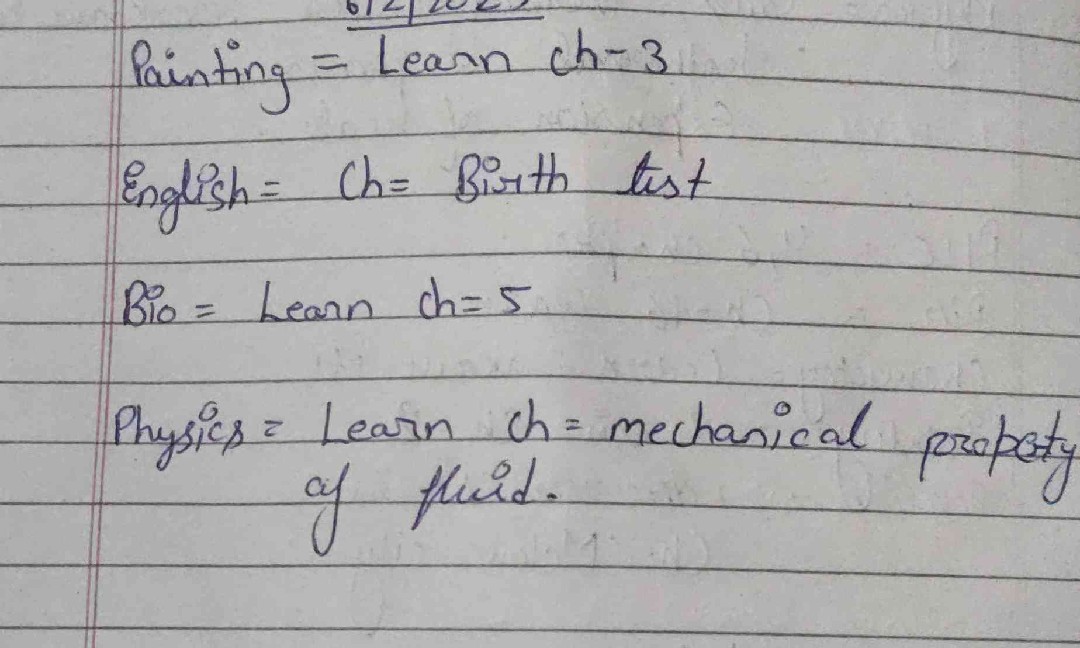 6/2/2023
Painting = Learn ch-3
English = Ch= Birth test
Bio = Learn ch= 5
Physics = Learn ch = mechanical property
of fluid.